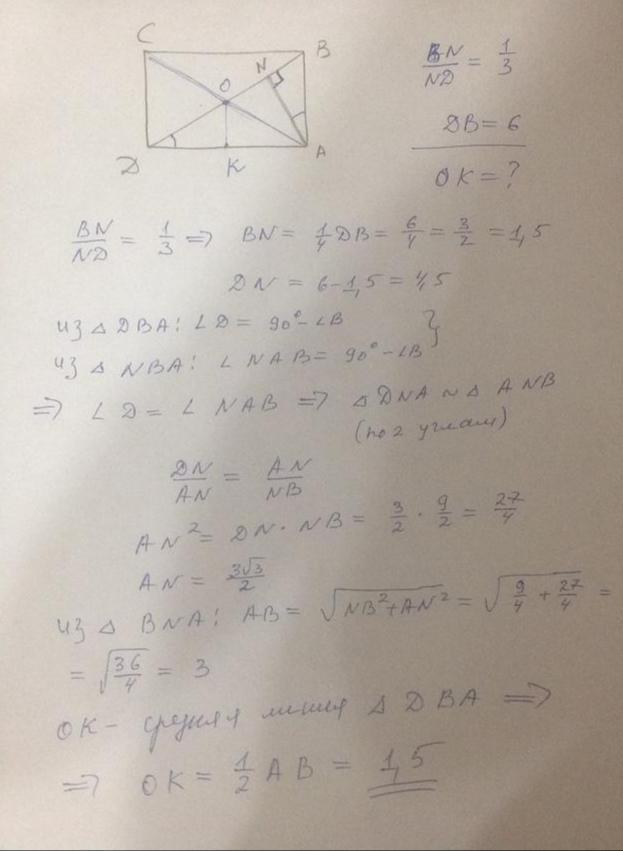 C B
N
O
D K A
BN/ND = 1/3
DB = 6
OK = ?
BN/ND = 1/3 ⇒ BN = 1/4 DB = 6/4 = 3/2 = 1,5
DN = 6 - 1,5 = 4,5
из △ DBA: ∠D = 90° - ∠B }
из △ NBA: ∠ NAB = 90° - ∠B
⇒ ∠ D = ∠ NAB ⇒ △ DNA ~ △ ANB
(по 2 углам)
DN/AN = AN/NB
AN² = DN · NB = 3/2 · 9/2 = 27/4
AN = 3√3/2
из △ BNA: AB = √(NB² + AN²) = √(9/4 + 27/4) =
= √(36/4) = 3
OK - средняя линия △ DBA ⇒
⇒ OK = 1/2 AB = 1,5